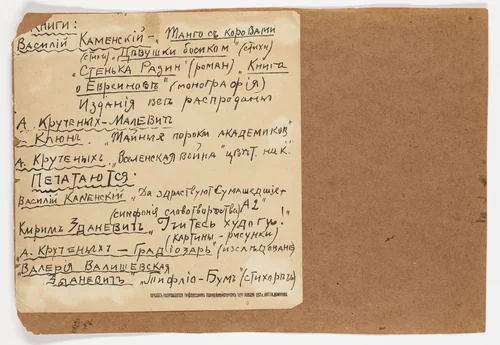 Книги:
Василій Каменскій - „Танго съ коровами
(стихи) „Дѣвушки босиком" (стихи)
„Стенька Разин" (роман) „Книга
о Евреиновѣ" (монографія)
Изданія всѣ распроданы
А. Крученых-Малевич
Клюнъ. „Тайныя пороки академиков"
А. Крученыхъ. „Вселенская война" цвѣт. нак.
Печатаются:
Василій Каменскій „Да здравствуют сумашедшіе
(симфонія словотворчества)
Кирилъ Зданевич „Учитесь худоги!"
(картины - рисунки)
„А. Крученыхъ - Градіозарь (изслѣдованіе)
„Валерія Валишевская
Зданевитъ „Тифлис-Бумъ" (стихарѣъ)